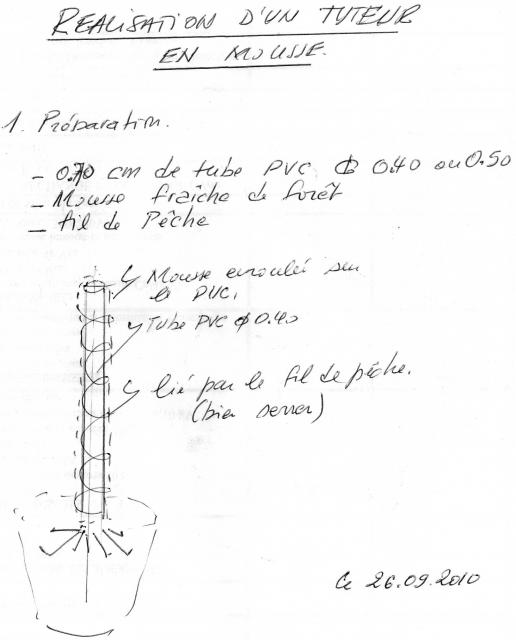 REALISATION D'UN TUTEUR
EN MOUSSE.
1. Préparation.
- 0.70 cm de tube PVC. ф 0.40 ou 0.50
- Mousse fraîche de forêt
- fil de Pêche
Mousse enroulée sur
le PVC.
Tube PVC ф 0.40
lié par le fil de pêche.
(bien serrer)
Le 26.09.2010